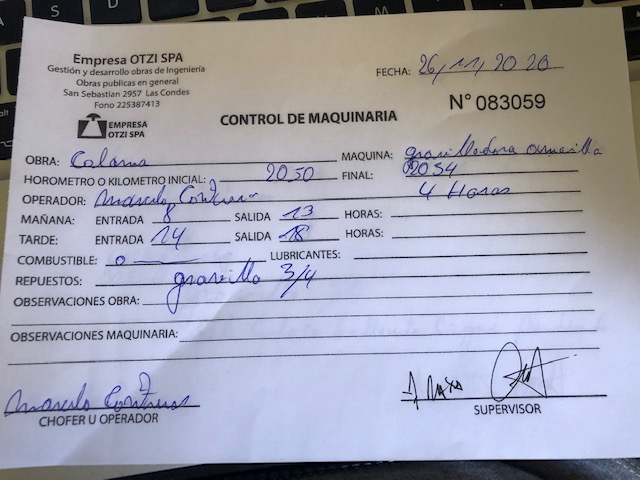 Empresa OTZI SPA
Gestión y desarrollo obras de Ingeniería
Obras publicas en general
San Sebastian 2957 Las Condes
Fono 225387413
EMPRESA
OTZI SPA
FECHA: 26/11/2020
CONTROL DE MAQUINARIA
N° 083059
OBRA: Calama MAQUINA:
HOROMETRO O KILOMETRO INICIAL: 2050 FINAL: 2054
OPERADOR: 4 Horas
MAÑANA: ENTRADA 8 SALIDA 13 HORAS:
TARDE: ENTRADA 14 SALIDA 18 HORAS:
COMBUSTIBLE: 0 LUBRICANTES:
REPUESTOS: gravilla 3/4
OBSERVACIONES OBRA:
OBSERVACIONES MAQUINARIA:
CHOFER U OPERADOR
SUPERVISOR